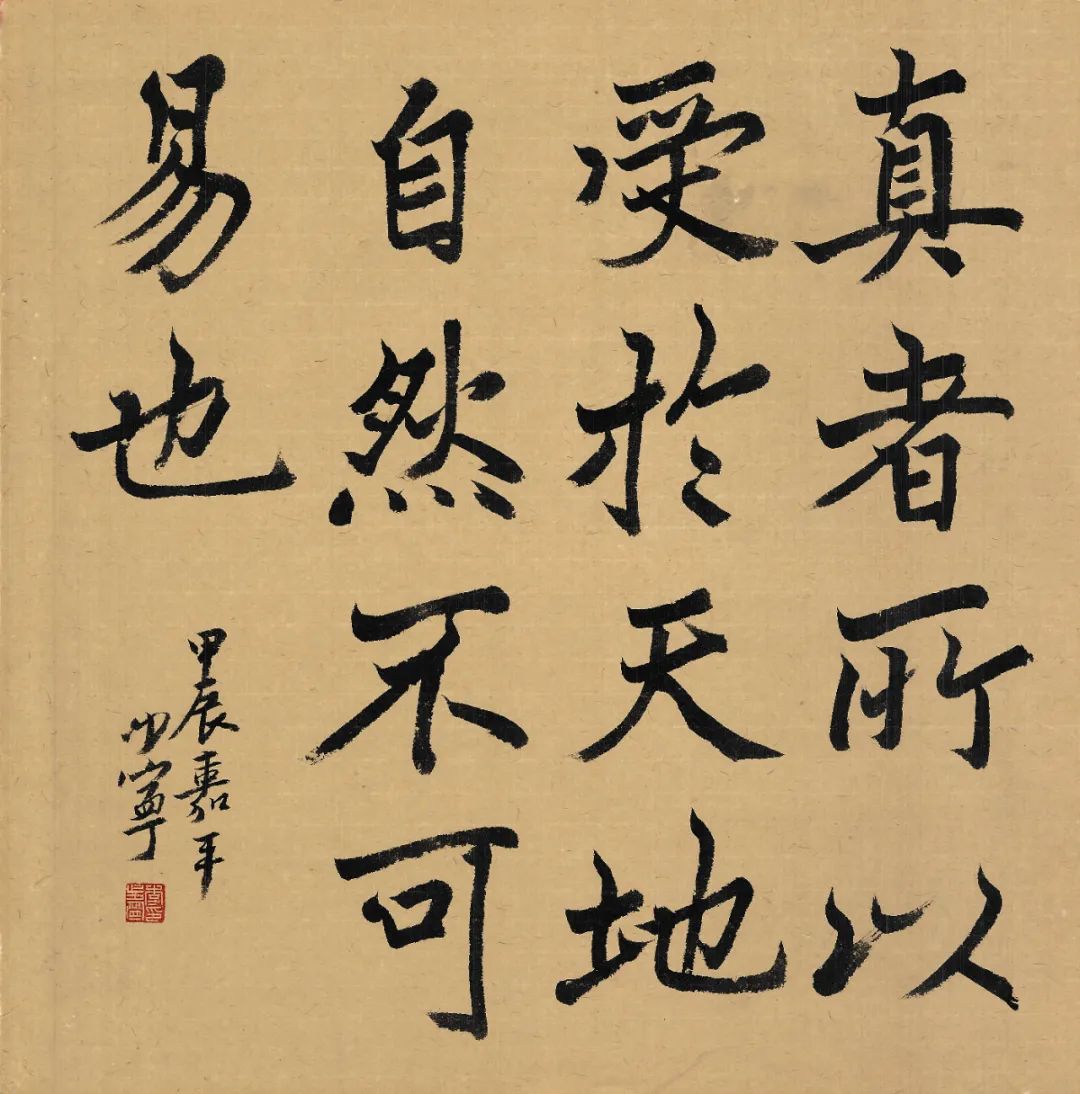 真者所以
受於天地
自然不可
易也
甲辰嘉平
少寧